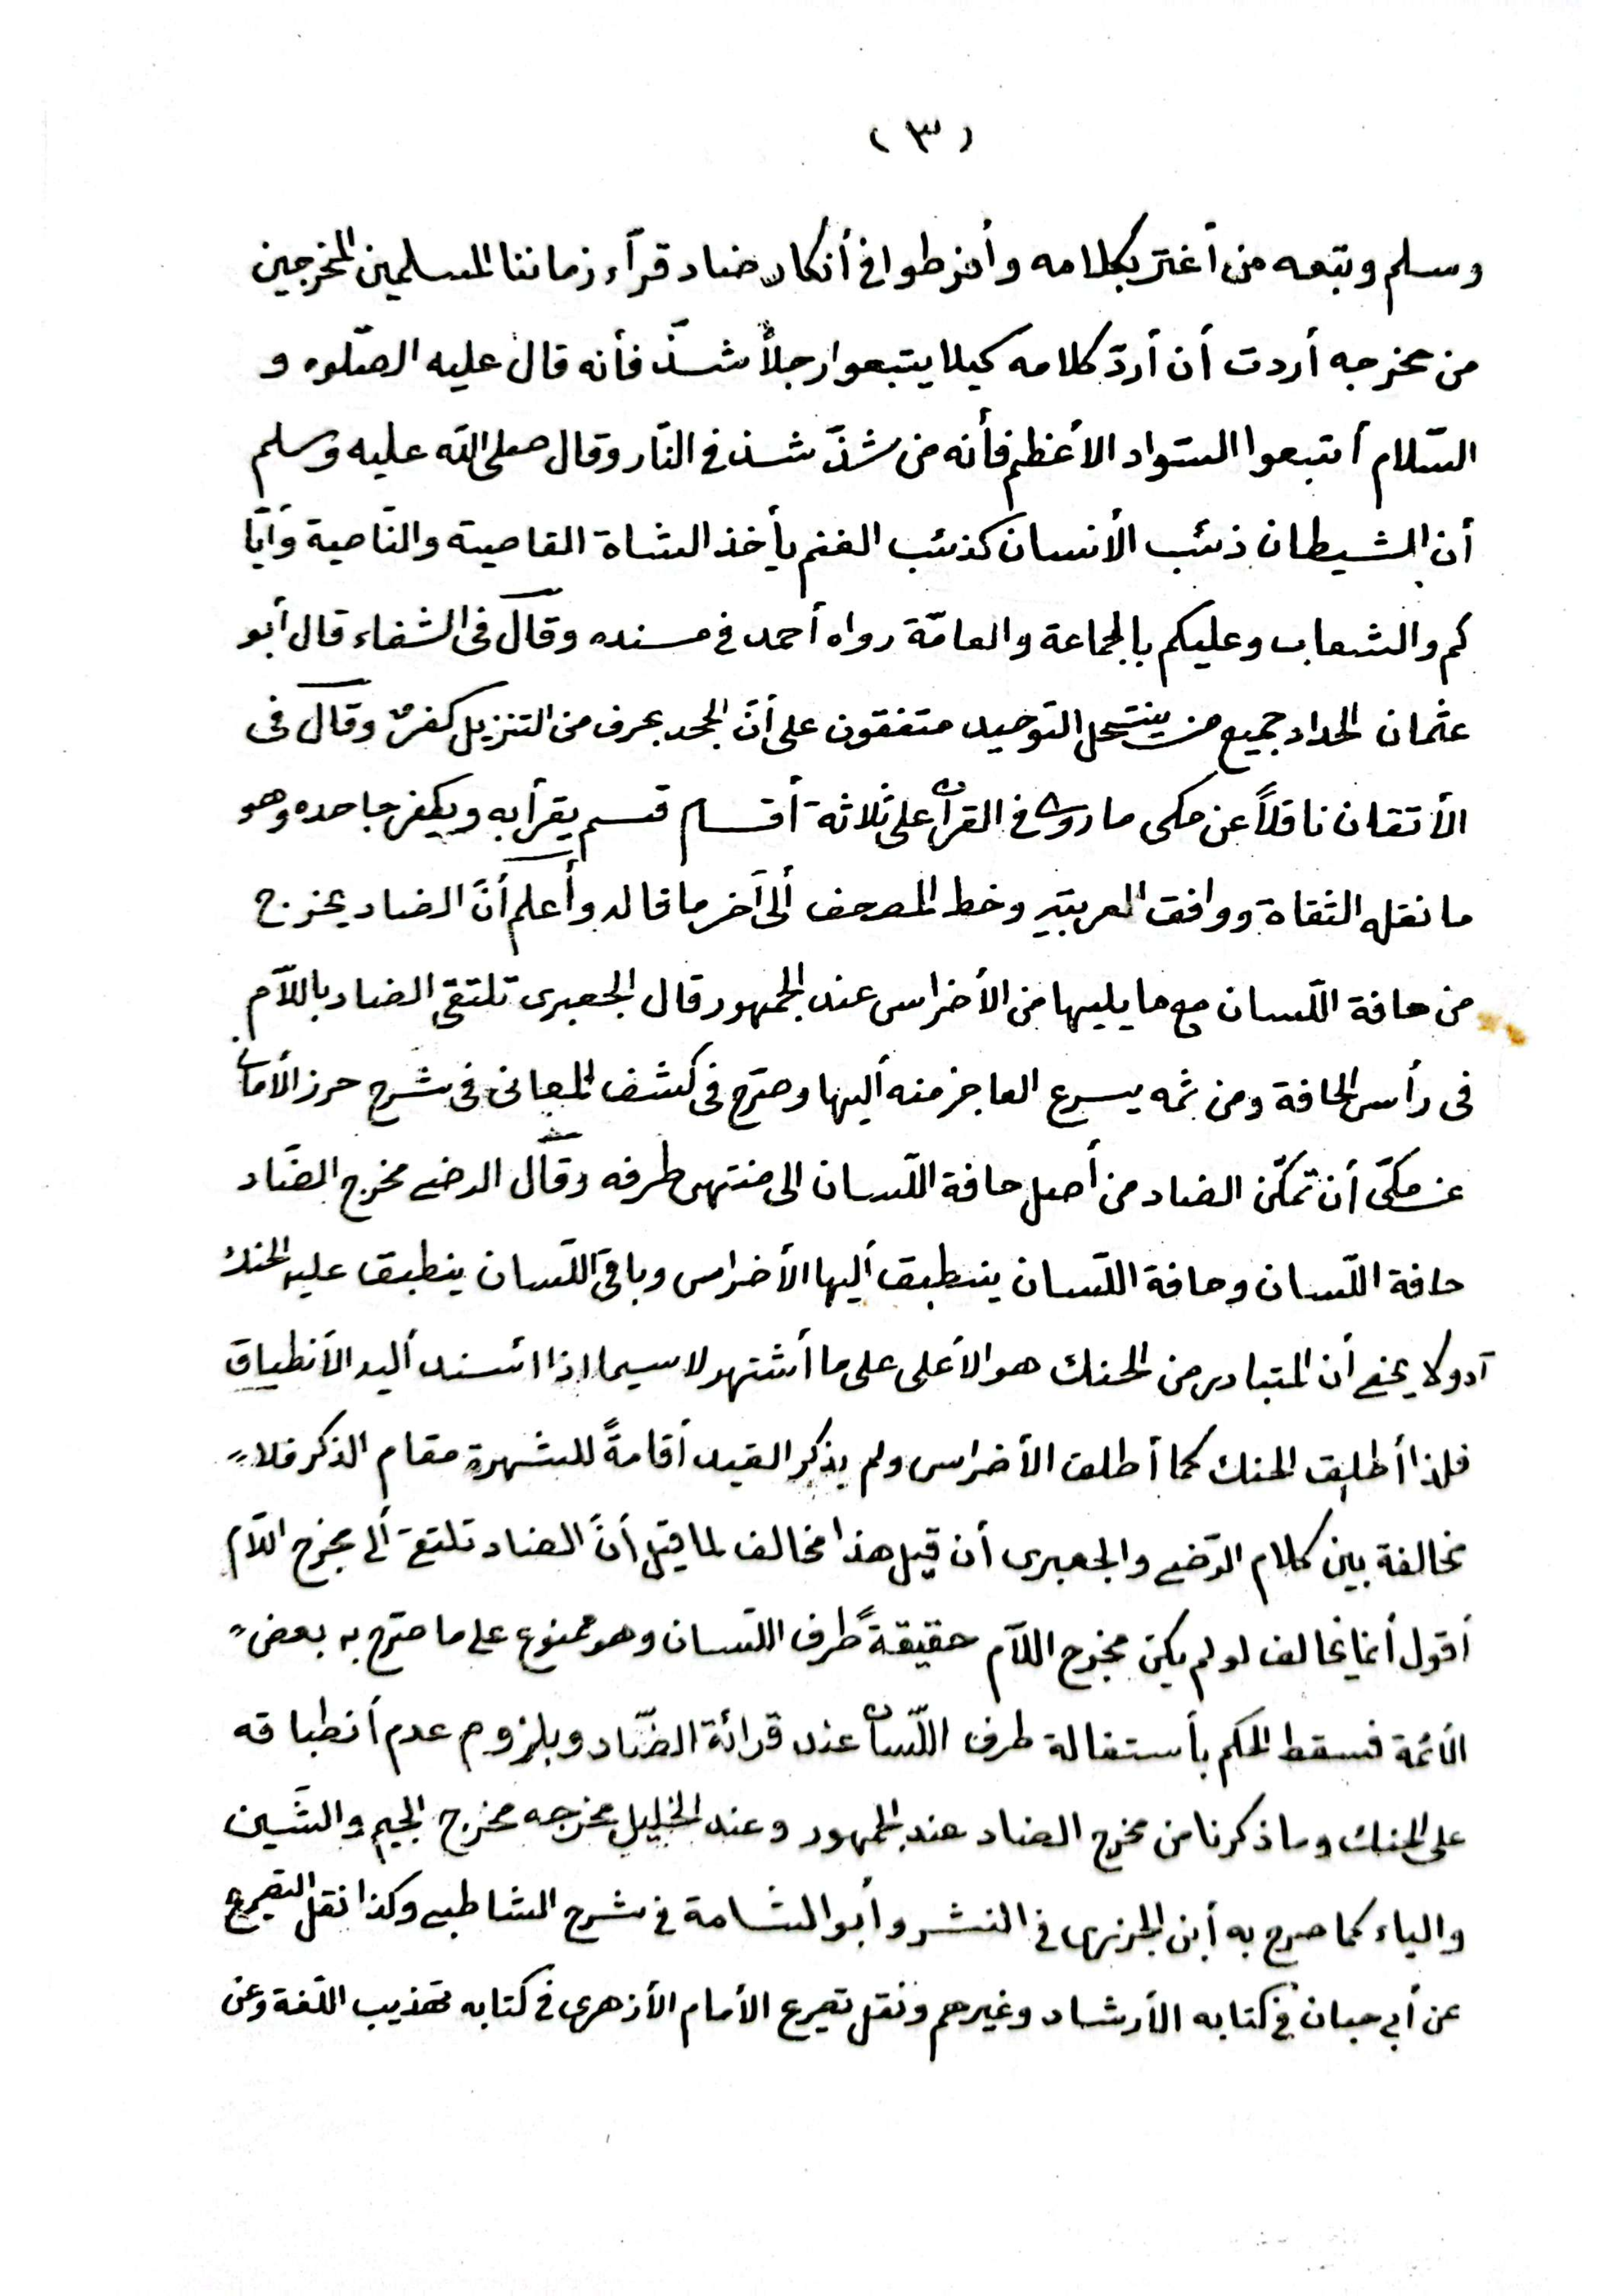 (٣)
وسلم وتبعه من أغترّ بكلامه وأفرطوا في أنكار ضاد قرّآء زماننا المسلمين المخرجين
من مخرجه أردت أن أردّ كلامه كيلا يتبعوا رجلاً شذّ فأنه قال عليه الصّلوه و
السّلام أتبعوا السّواد الأعظم فأنه من شذّ شذ في النّار وقال صلى الله عليه وسلم
أن الشيطان ذئب الأنسان كذئب الغنم يأخذ الشاة القاصية والنّاصية وَأيّا
كم والشعاب وعليكم بالجماعة والعامّة رواه أحمد في مسنده وقال فى الشفاء قال أبو
عثمان الحداد جميع من ينتحل التوحيد متفقون على أنّ الجحد بحرف من التنزيل كفرٌ وقال فى
الأتقان ناقلاً عن مكى ما روى في القرأن على ثلاثة أقسام قسم يقرأ به ويكفر جاحده وهو
ما نقله الثقاة ووافق العربيّة وخط المصحف ألى آخر ما قاله وأعلم أنّ الضاد يخرج
من حافة اللّسان مع ما يليها من الأضراس عند الجمهور قال الجعبرى تلتقى الضاد باللآم
فى رأس الحافة ومن ثمه يسرع العاجز منه أليها وصرّح فى كشف المعانى فى شرح حرز الأمانى
عن مكىّ أن تمكّن الضاد من أصل حافة اللّسان الى منتهى طرفه وقال الرضى مخرج الضّاد
حافة اللّسان وحافة اللّسان ينطبق أليها الأضراس وباقى اللّسان ينطبق عليه الحنك
آه ولا يخفى أن المتبادر من الحنك هو الأعلى على ما أشتهر لا سيما اذا ائسند أليه الأنطباق
فلذا أطلق الحنك كما أطلق الأضراس ولم يذكر القيد أقامةً للشهرة مقام الذكر فلا
مخالفة بين كلام الرّضى والجعبرى أن قيل هذا مخالف لما قيل أنّ الضاد تلتقى ألى مخرج اللآم
أقول أنما يخالف لو لم يكن مخرج اللآم حقيقةً طرف اللّسان وهو ممنوع على ما صرّح به بعض
الأئمة فسقط الحكم بأستفالة طرف اللّسان عند قرائة الضّاد وبلزوم عدم أنطباقه
على الحنك وما ذكرنا من مخرج الضاد عند الجمهور وعند الخليل مخرجه مخرج الجيم والشّين
والياء كما صرح به أبن الجزرى في النشر وأبو الشّامة في شرح الشاطبى وكذا نقل التصريح
عن أبي حيان في كتابه الأرشاد وغيرهم ونقل تصرع الأمام الأزهرى في كتابه تهذيب اللّغة وعن